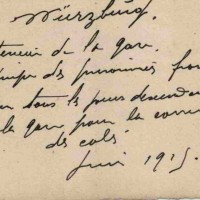 Würzburg.
térieur de la gare.
uipe des prisonniers fran
en tous les jours descendan
la gare pour la corvé
des colis
Juin 1915.